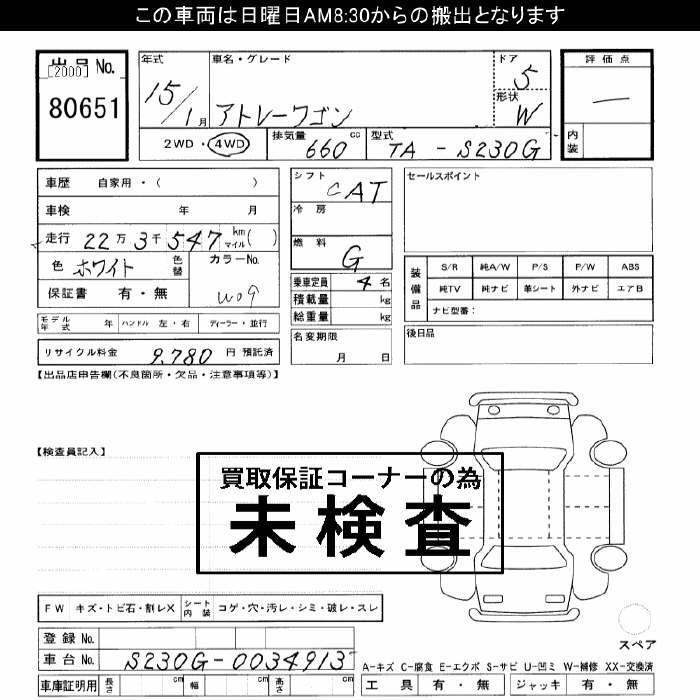 この車両は日曜日AM8:30からの搬出となります
出品No.
[2000]
80651
年式
15/1月
車名・グレード
アトレーワゴン
ドア
5
形状
W
評価点
—
内装
2WD・4WD
排気量
660 cc
型式
TA - S230G
車歴 自家用・( )
車検 年 月
走行 22万3千547 km マイル( )
色 ホワイト 色替
カラーNo.
W09
保証書 有・無
シフト
CAT
冷房
燃料
G
乗車定員 4名
積載量 kg
総重量 kg
セールスポイント
装備品
S/R 純A/W P/S P/W ABS
純TV 純ナビ 革シート 外ナビ エアB
ナビ型番:
モデル年式 年 ハンドル 左・右 ディーラー・並行
リサイクル料金 9,780 円 預託済
名変期限
月 日
後日品
【出品店申告欄(不良箇所・欠品・注意事項等)】
【検査員記入】
買取保証コーナーの為
未検査
FW キズ・トビ石・割レX シート内装 コゲ・穴・汚レ・シミ・破レ・スレ
登録No.
車台No. S230G-0034913
車庫証明用 長さ cm 幅 cm 高さ cm
スペア
A-キズ C-腐食 E-エクボ S-サビ U-凹ミ W-補修 XX-交換済
工具 有・無 ジャッキ 有・無